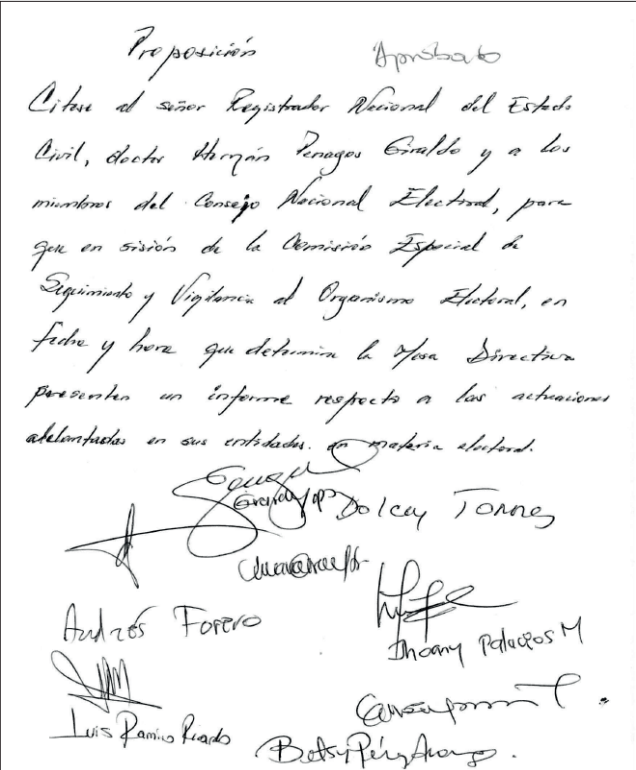 Proposición Aprobado
Citese al señor Registrador Nacional del Estado
Civil, doctor Hernán Penagos Giraldo y a los
miembros del Consejo Nacional Electoral, para
que en sesión de la Comisión Especial de
Seguimiento y Vigilancia al Organismo Electoral, en
fecha y hora que determine la Mesa Directiva
presenten un informe respecto a las actuaciones
adelantadas en sus entidades en materia electoral.
Dolcey Torres
Andrés Forero
Jhoany Palacios M
Luis Ramiro Ricardo
Betsy Pérez Arango.